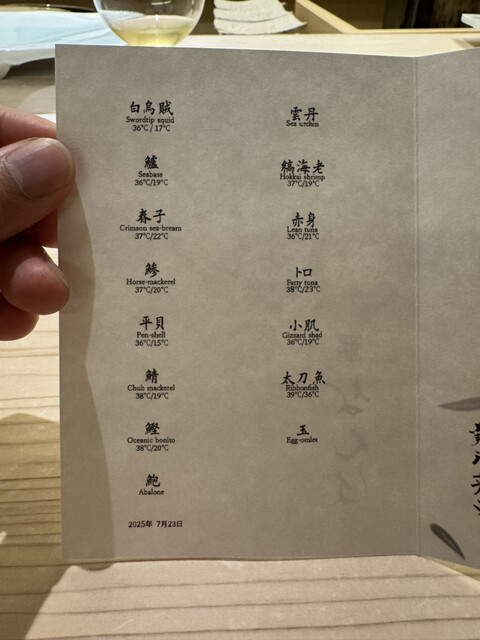 白烏賊
Swordtip squid
36℃ / 17℃
鱸
Seabass
36℃/19℃
春子
Crimson sea-bream
37℃/22℃
鯵
Horse-mackerel
37℃/20℃
平貝
Pen-shell
36℃/15℃
鯖
Chub mackerel
38℃/19℃
鰹
Oceanic bonito
38℃/20℃
鮑
Abalone
2025年 7月23日
雲丹
Sea urchin
縞海老
Hokkai shrimp
37℃/19℃
赤身
Lean tuna
36℃/21℃
トロ
Fatty tuna
38℃/23℃
小肌
Gizzard shad
36℃/19℃
太刀魚
Ribbonfish
39℃/36℃
玉
Egg-omlet